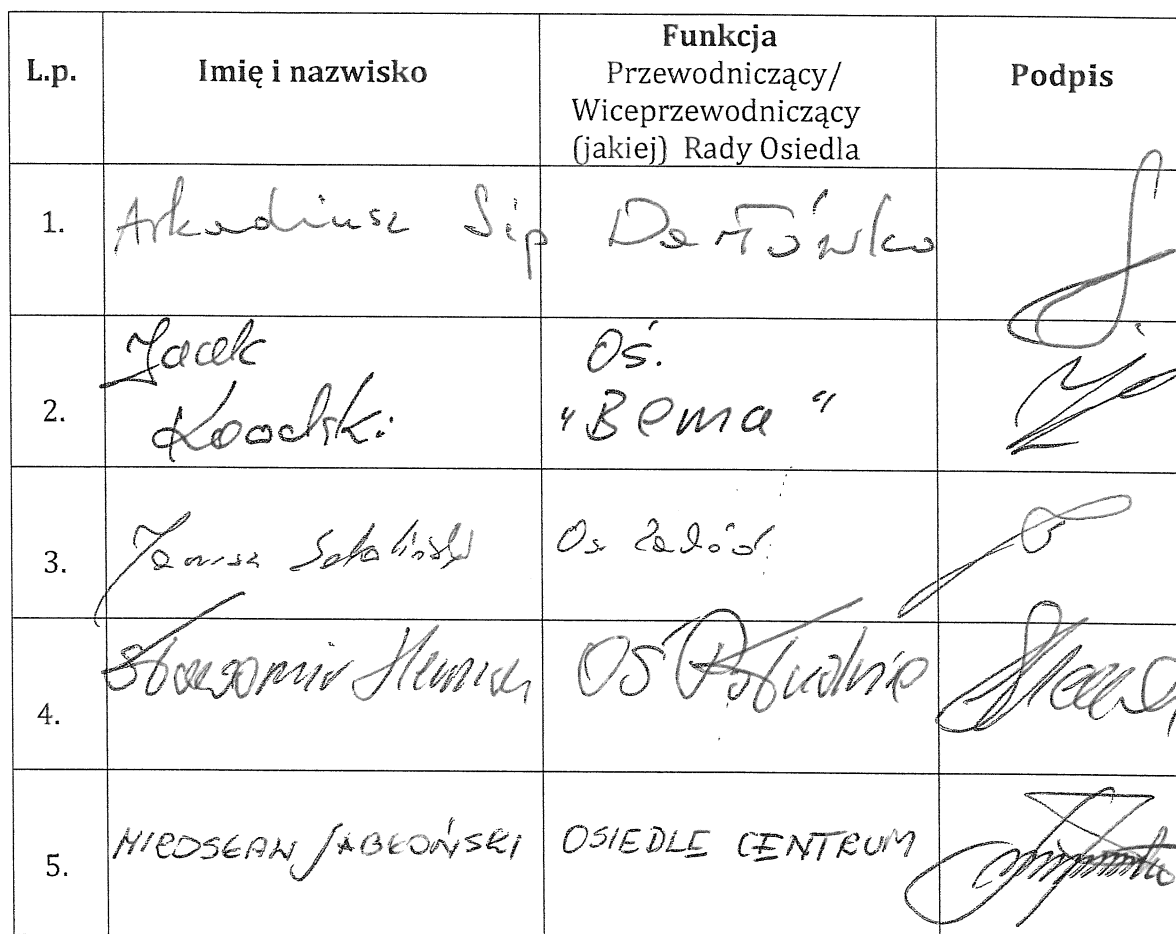 L.p. Imię i nazwisko Funkcja Przewodniczący/ Wiceprzewodniczący (jakiej) Rady Osiedla Podpis
1. Arkadiusz Sip Darłówko
2. Jacek Oś.
"Bema"
3. Janusz Os Zachód
4. Sławomir OŚ Południe
5. MIROSŁAW JABŁOŃSKI OSIEDLE CENTRUM